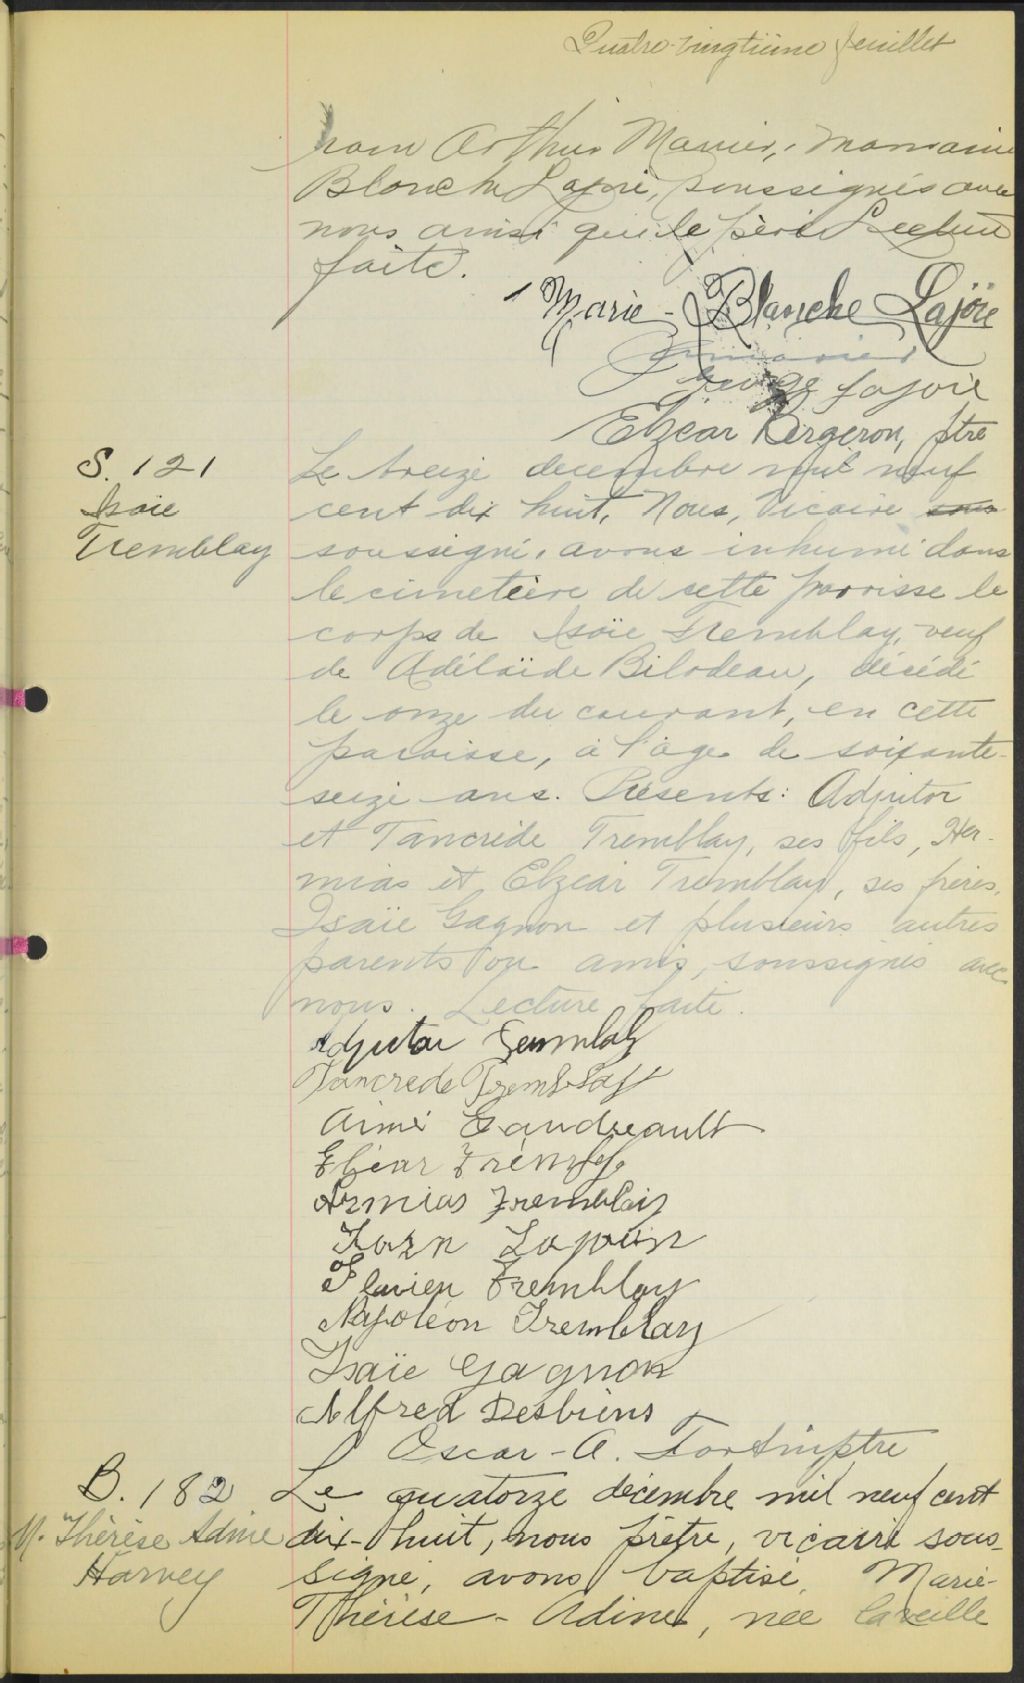 Quatre-vingtième feuillet
rain Arthur marraine
Blanche Lajoie, soussignés avec
nous ainsi que le père. Lecture
faite.
Marie-Blanche Lajoie
George Lajoie
Elzéar Bergeron, ptre
S. 121
Isaie
Tremblay
Le treize decembre mil neuf
cent dix huit, Nous, Vicaire sous
soussigné, avons inhumé dans
le cimetière de cette parroisse le
corps de Isaïe Tremblay, veuf
de Adélaïde Bilodeau, décédé
le onze du courant, en cette
paroisse, à l'âge de soixante-
seize ans. Présents: Adjutor
et Tancrède Tremblay, ses fils, Her-
mias et Elzéar Tremblay, ses frères,
Isaïe Gagnon et plusieurs autres
parents ou amis, soussignés avec
nous. Lecture faite.
Adjutor Tremblay
Tancrede Tremblay
Aimé Gaudreault
Elzéar
Armias Tremblay
Flavien Tremblay
Napoléon Tremblay
Isaïe Gagnon
Alfred Desbiens
Oscar-A. Fortin, ptre
B. 182
M. Thérèse Adine
Harvey
Le quatorze décembre mil neuf cent
dix-huit, nous prêtre, vicaire sous-
signé, avons baptisé Marie-
Thérèse-Adine, née la veille